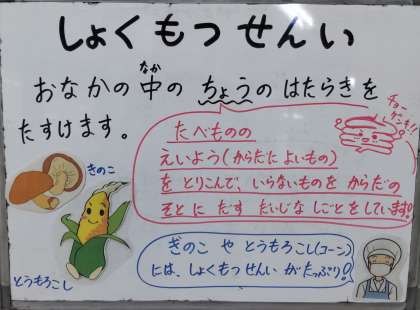 しょくもつせんい
おなかの中のちょうのはたらきを
なか
たすけます。
チョー
ゲンキ!!
たべものの
えいよう(からだによいもの)
をとりこんで、いらないものをからだの
そとにだすだいじなしごとをしています!!
きのこ
とうもろこし
きのこやとうもろこし(コーン)
には、しょくもつせんいがたっぷり!